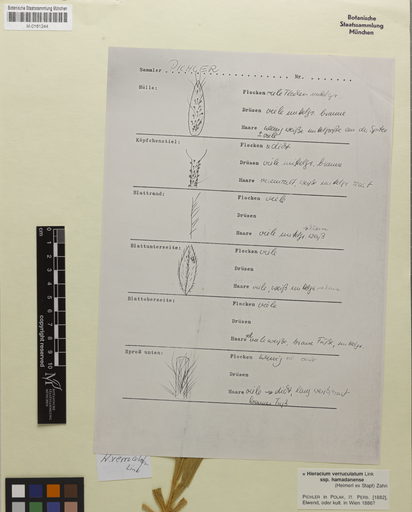 Botanische Staatssammlung München
M-0161244
Botanische
Staatssammlung
München
Sammler PICHLER Nr.
Hülle:
Flocken viele
Drüsen viele mittelgr. braune
Haare wenig weiße mittelgroße an der Spitze
viele
Köpfchenstiel:
Flocken dicht
Drüsen viele mittelgr. braune
Haare vereinzelt weiße mittelgr.
Blattrand:
Flocken viele
Drüsen
Haare viele mittelgr. weiß
Blattunterseite:
Flocken viele
Drüsen
Haare viele, weiß mittelgr.
Blattoberseite:
Flocken viele
Drüsen
Haare viele weiße, braune Füße, mittelgr.
Sproß unten:
Flocken wenig
Drüsen
Haare viele dicht, lang
brauner Fuß
cm
copyright reserved
H. verruculatum
Link
= Hieracium verruculatum Link
ssp. hamadanense
(Heimerl ex Stapf) Zahn
PICHLER in POLAK, IT. PERS. [1882],
Elwend, oder kult. in Wien 1886?